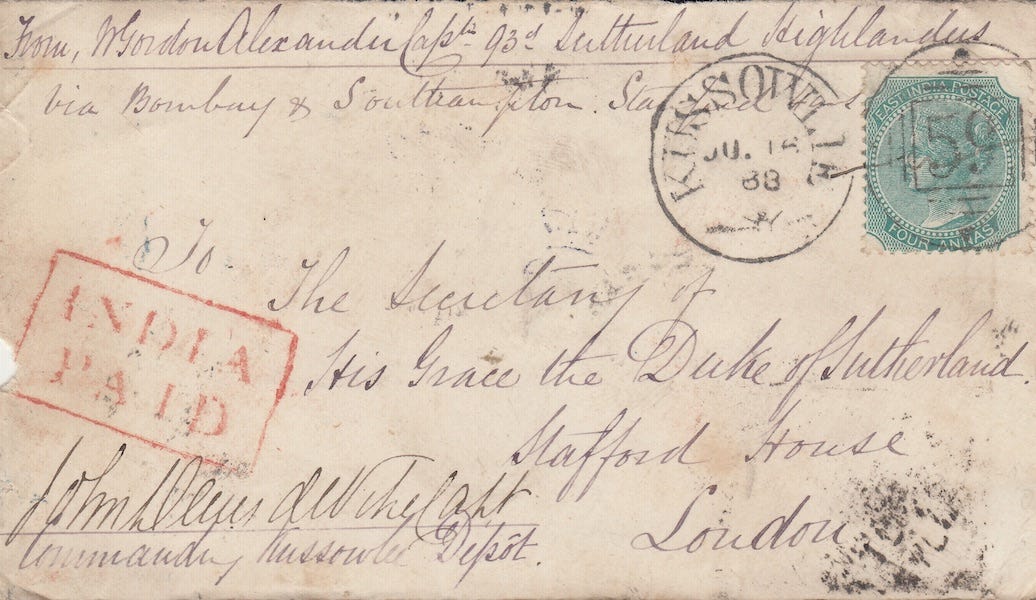 From, W Gordon Alexander Captn 93d Sutherland Highlanders
via Bombay & Southampton.
KUSSOWLIE
JU. 
EAST INDIA POSTAGE
59
FOUR ANNAS
To
The Secretary of
His Grace the Duke of Sutherland
Stafford House
London
INDIA
PAID
John
Commanding Kussowlie Depôt.